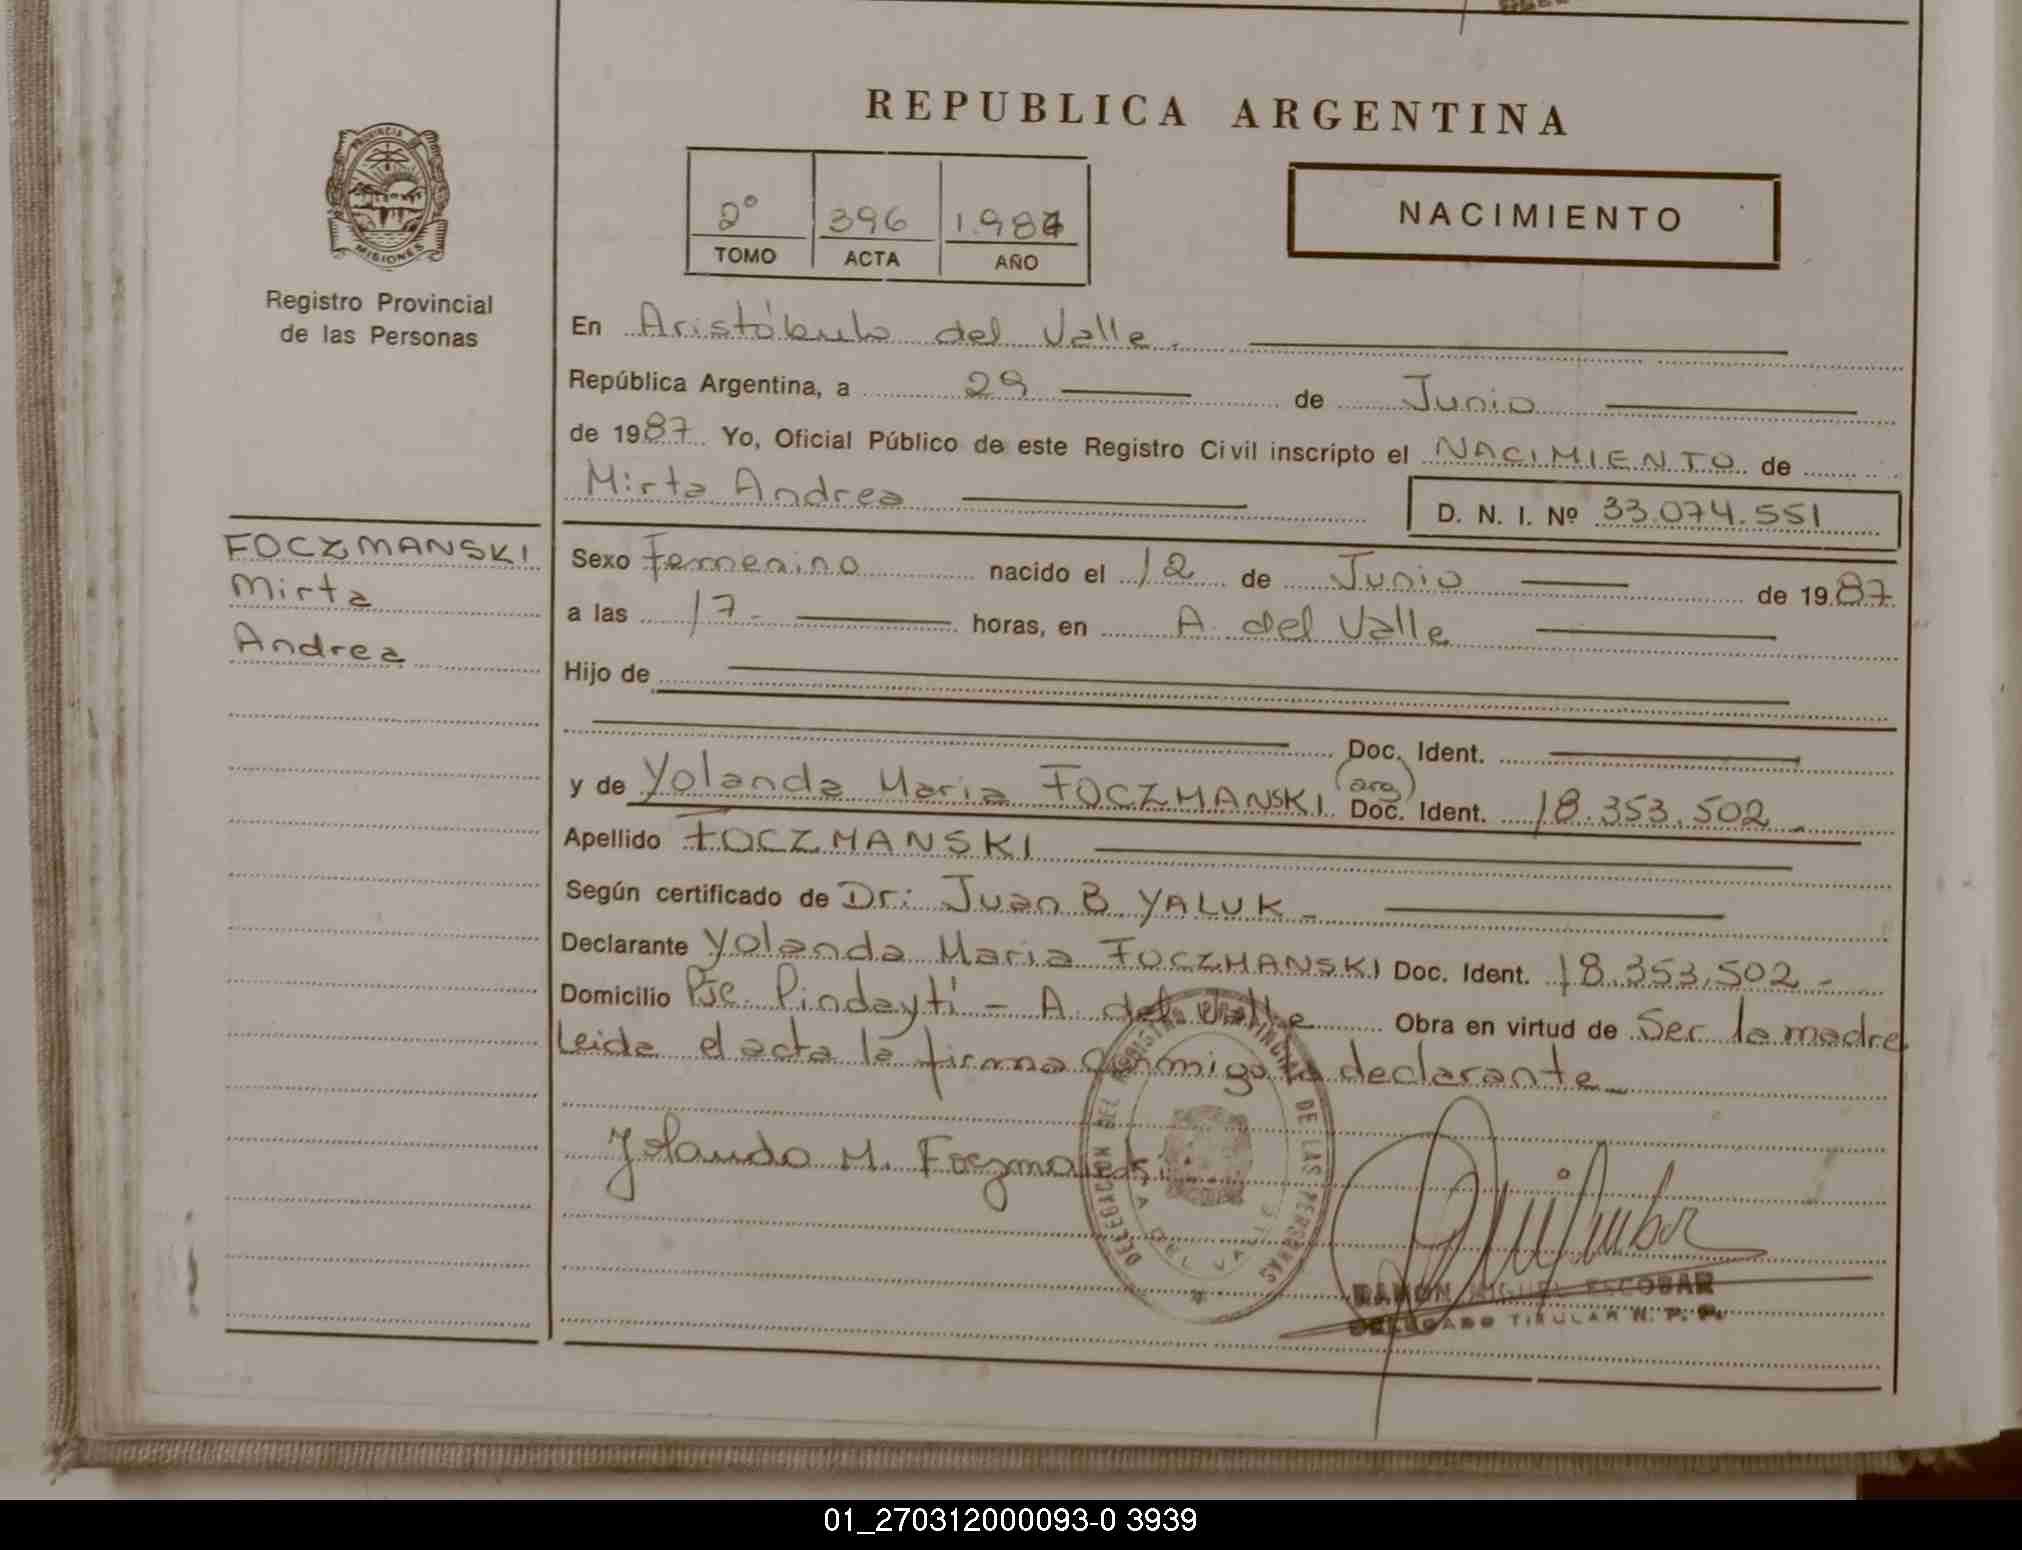 REPUBLICA ARGENTINA
PROVINCIA DE
MISIONES
Registro Provincial
de las Personas
2° 396 1.987
TOMO ACTA AÑO
NACIMIENTO
En Aristóbulo del Valle.
República Argentina, a 29 de Junio
de 1987 Yo, Oficial Público de este Registro Civil inscripto el NACIMIENTO de
Mirta Andrea D. N. I. Nº 33.074.551
FOCZMANSKI
Mirta
Andrea
Sexo Femenino nacido el 12 de Junio de 1987
a las 17- horas, en A. del Valle
Hijo de
Doc. Ident.
y de Yolanda Maria FOCZMANSKI. (arg) Doc. Ident. 18.353.502-
Apellido FOCZMANSKI
Según certificado de Dr: Juan B. YALUK-
Declarante Yolanda Maria FOCZMANSKI Doc. Ident. 18.353.502-
Domicilio Pje. Pindaytí - A. del Valle Obra en virtud de Ser la madre
Leida el acta la firma conmigo la declarante-
Yolanda M. Foczmanski
DELEGACION DEL REGISTRO PROVINCIAL DE LAS PERSONAS
A. DEL VALLE
RAMON MIGUEL ESCOBAR
DELEGADO TITULAR R. P. P.
01_270312000093-0 3939